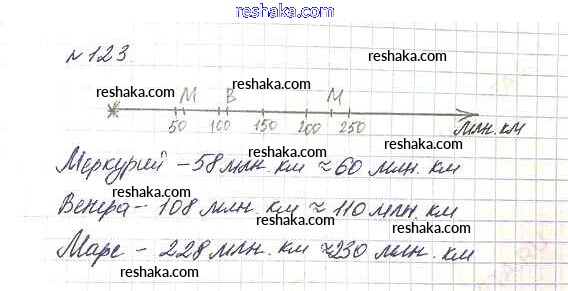 reshaka.com
№123.
reshaka.com
reshaka.com
reshaka.com
М В М
reshaka.com
50 100 150 200 250
млн. км
reshaka.com
Меркурий – 58 млн. км ≈ 60 млн. км
reshaka.com
reshaka.com
Венера – 108 млн. км ≈ 110 млн. км
reshaka.com
Марс – 228 млн. км ≈ 230 млн. км
reshaka.com
reshaka.com